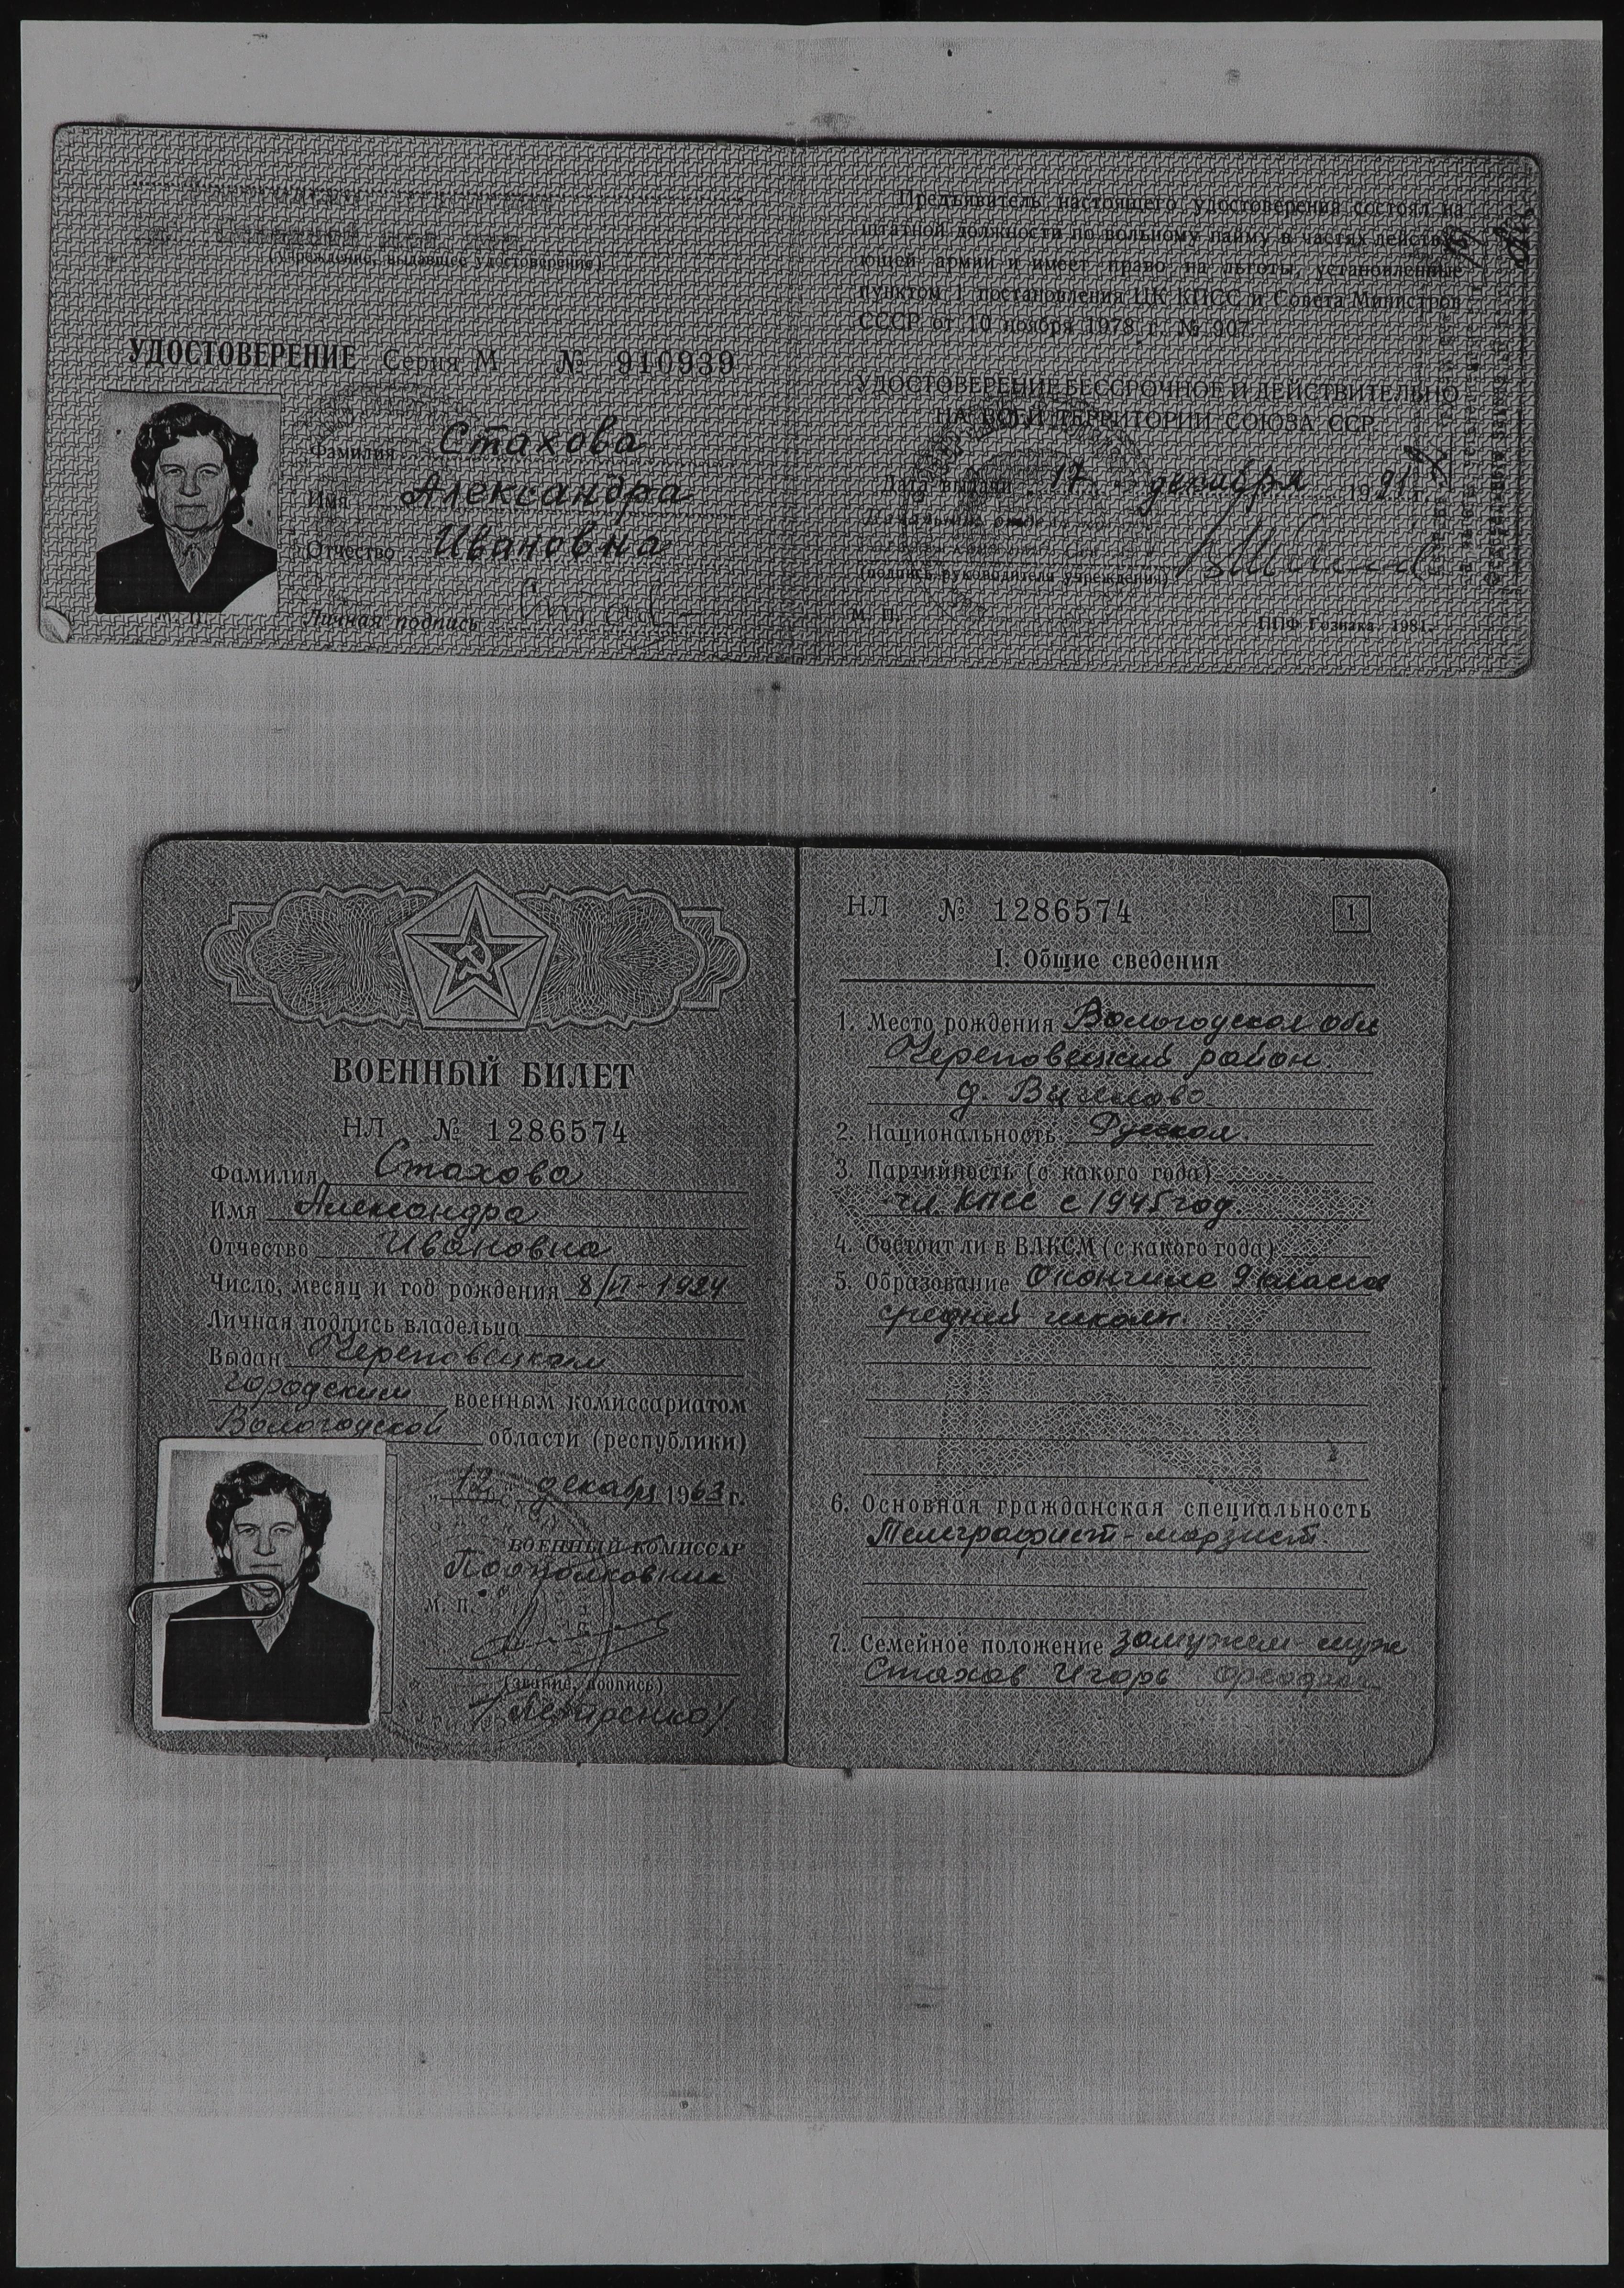 (учреждение, выдавшее удостоверение)
УДОСТОВЕРЕНИЕ Серия М № 910939
Фамилия Стахова
Имя Александра
Отчество Ивановна
М. П.
Личная подпись
Предъявитель настоящего удостоверения состоял на
штатной должности по вольному найму в частях действу-
ющей армии и имеет право на льготы, установленные
пунктом 1 постановления ЦК КПСС и Совета Министров
СССР от 10 ноября 1978 г. № 907.
УДОСТОВЕРЕНИЕ БЕССРОЧНОЕ И ДЕЙСТВИТЕЛЬНО
НА ВСЕЙ ТЕРРИТОРИИ СОЮЗА ССР.
Дата выдачи 17 декабря 1991 г.
(подпись руководителя учреждения)
М. П.
ППФ Гознака 1981.
ВОЕННЫЙ БИЛЕТ
НЛ № 1286574
Фамилия Стахова
Имя Александра
Отчество Ивановна
Число, месяц и год рождения 8/VI-1924
Личная подпись владельца
Выдан Череповецким
городским военным комиссариатом
Вологодской области (республики)
„12“ декабря 1963 г.
ВОЕННЫЙ КОМИССАР
Подполковник
М. П.
(звание, подпись)
НЛ № 1286574 1
I. Общие сведения
1. Место рождения Вологодская обл
Череповецкий район.
д.
2. Национальность Русская.
3. Партийность (с какого года)
чл. КПСС с 1945 год.
4. Состоит ли в ВЛКСМ (с какого года)
5. Образование Окончила 9 класса
средней школы.
6. Основная гражданская специальность
Телеграфист-морзист.
7. Семейное положение замужем - муж
Стахов Игорь